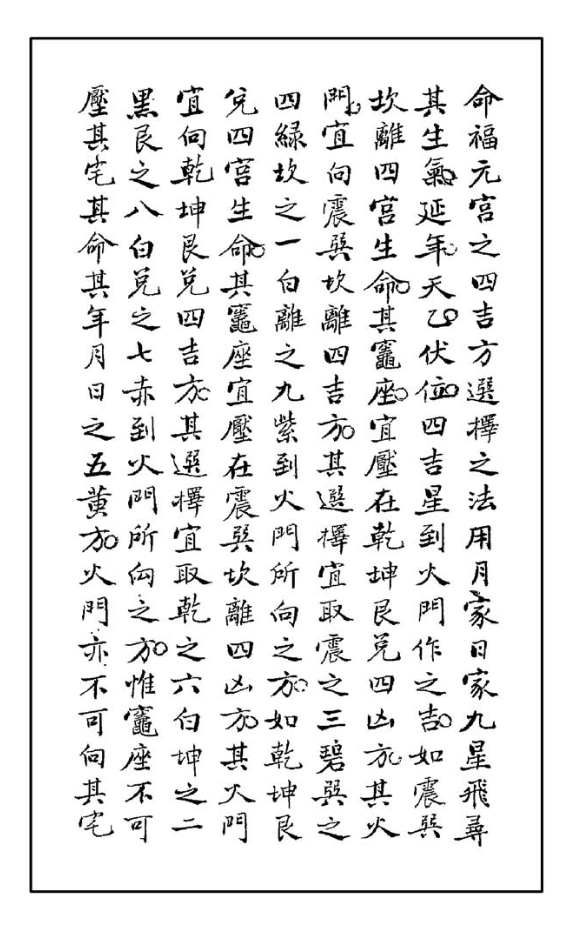 命福元宮之四吉方選擇之法用月家日家九星飛尋
其生氣延年。天乙伏位。四吉星到火門作之吉。如震巽
坎離四宮生命。其竈座。宜壓在乾坤艮兌四凶方。其火
門。宜向震巽坎離四吉方。其選擇宜取震之三碧巽之
四綠坎之一白離之九紫到火門所向之方。如乾坤艮
兌四宮生命。其竈座宜壓在震巽坎離四凶方。其火門
宜向乾坤艮兌四吉方。其選擇宜取乾之六白坤之二
黑艮之八白兌之七赤到火門所向之方。惟竈座不可
壓其宅其命其年月日之五黃方。火門亦不可向其宅